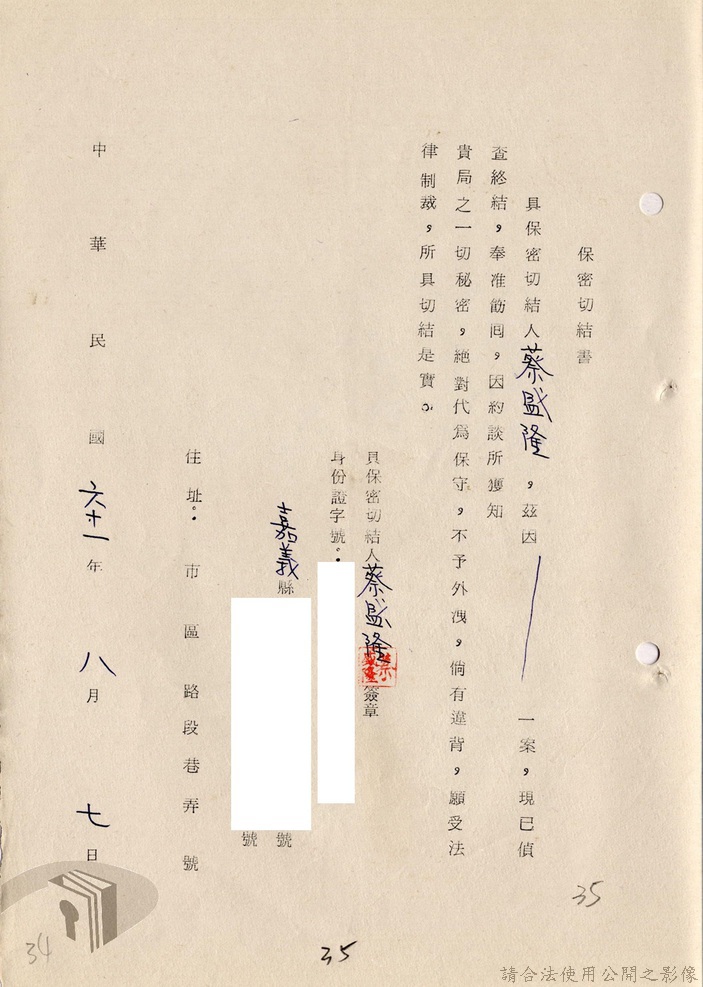 保密切結書
具保密切結人蔡盛隆,茲因 一案,現已偵
查終結,奉准飭回,因約談所獲知
貴局之一切秘密,絕對代為保守,不予外洩,倘有違背,願受法
律制裁,所具切結是實。
具保密切結人蔡盛隆簽章
身份證字號:
嘉義縣 號
號
住址:市區路段巷弄號
中華民國六十一年八月七日
35
35
34
請合法使用公開之影像